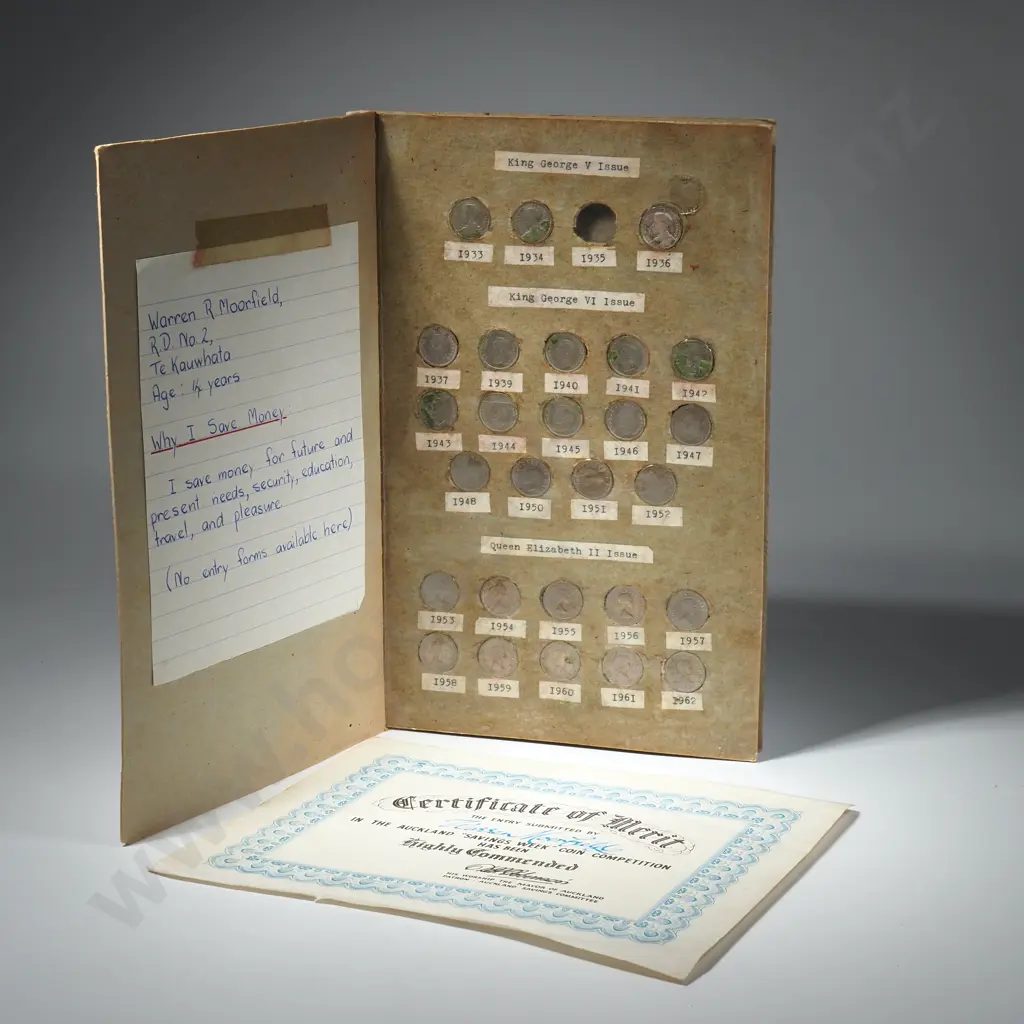 Warren R Moorfield,
R.D. No. 2,
Te Kauwhata
Age: 14 years
Why I Save Money
I save money for future and
present needs, security, education,
travel, and pleasure.
(No entry forms available here)
King George V Issue
I933 I934 I935 I936
King George VI Issue
I937 I939 I940 I941 I942
I943 I944 I945 I946 I947
I948 I950 I951 I952
Queen Elizabeth II Issue
I953 I954 I955 I956 I957
I958 I959 I960 I961 I962
Certificate of Merit
THE ENTRY SUBMITTED BY
Warren Moorfield
IN THE AUCKLAND "SAVINGS WEEK" COIN COMPETITION
HAS BEEN
Highly Commended
HIS WORSHIP THE MAYOR OF AUCKLAND
PATRON AUCKLAND SAVINGS COMMITTEE